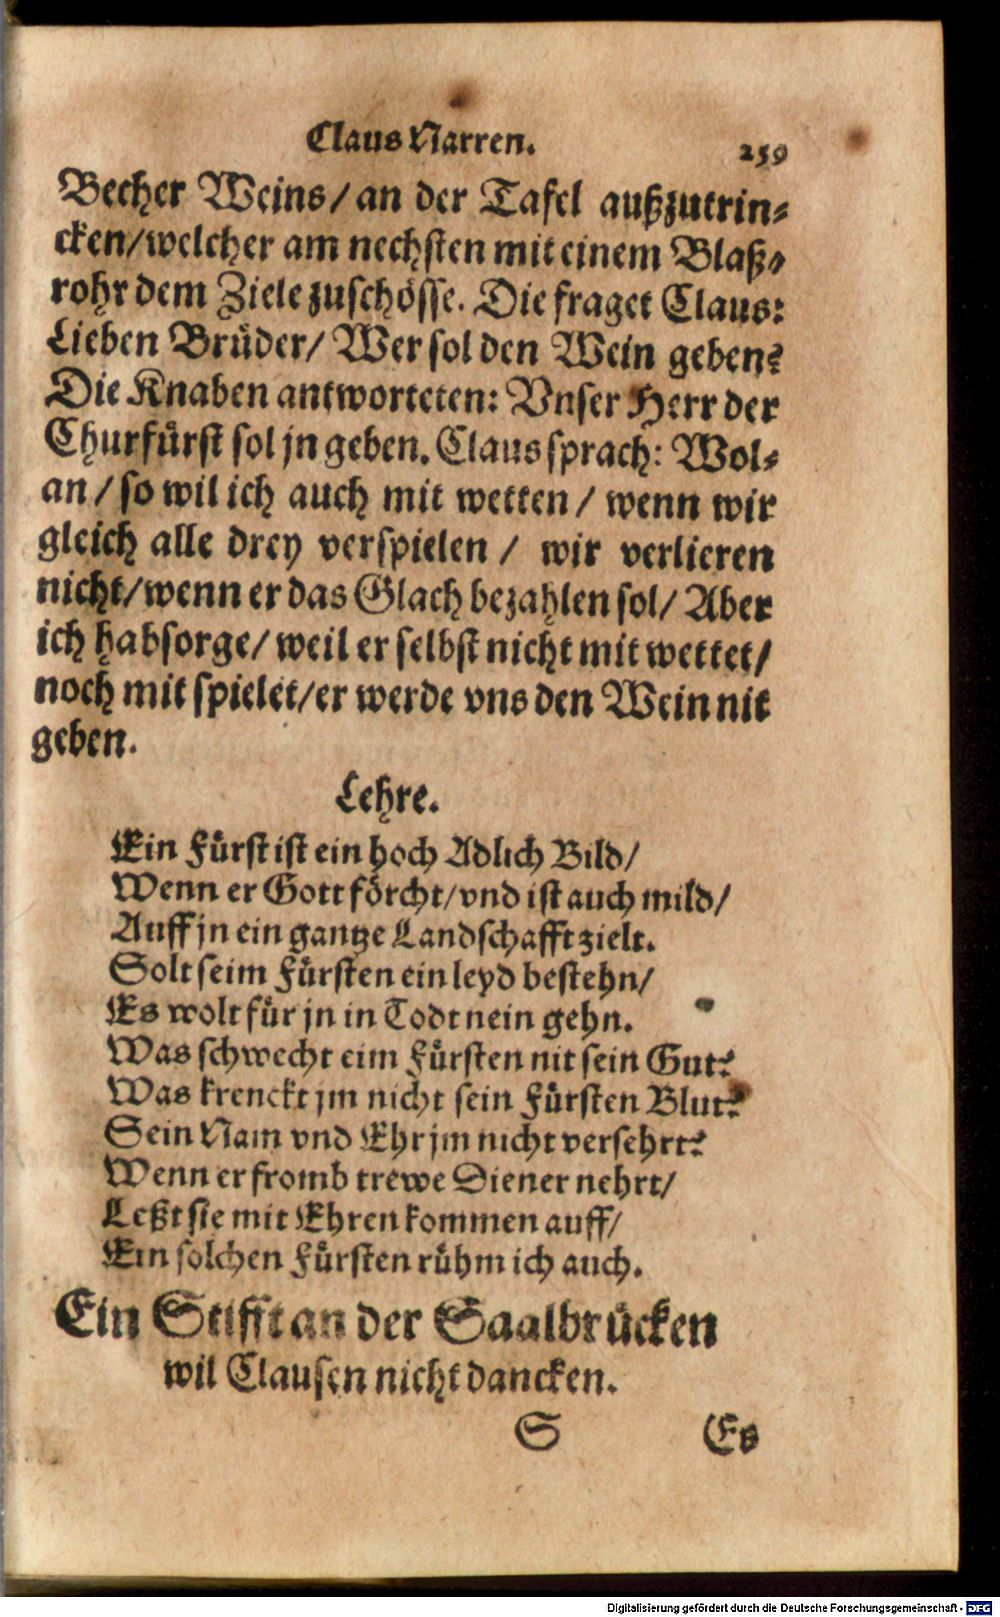 Claus Narren. 259
Becher Weins/ an der Tafel außzutrin-
cken/welcher am nechsten mit einem Blaß-
rohr dem Ziele zuschösse. Die fraget Claus:
Lieben Brüder/ Wer sol den Wein geben?
Die Knaben antworteten: Vnser Herr der
Churfürst sol jn geben. Claus sprach: Wol-
an / so wil ich auch mit wetten / wenn wir
gleich alle drey verspielen / wir verlieren
nicht/wenn er das Glach bezahlen sol/ Aber
ich hab sorge/ weil er selbst nicht mit wettet/
noch mit spielet/er werde vns den Wein nit
geben.
Lehre.
Ein Fürst ist ein hoch Adlich Bild/
Wenn er Gott förcht/vnd ist auch mild/
Auff jn ein gantze Landschafft zielt.
Solt seim Fürsten ein leyd bestehn/
Es wolt für jn in Todt nein gehn.
Was schwecht eim Fürsten nit sein Gut?
Was krenckt jm nicht sein Fürsten Blut?
Sein Nam vnd Ehr jm nicht versehrt?
Wenn er fromb trewe Diener nehrt/
Leßt sie mit Ehren kommen auff/
Ein solchen Fürsten rühm ich auch.
Ein Stifft an der Saalbrücken
wil Clausen nicht dancken.
S Es
Digitalisierung gefördert durch die Deutsche Forschungsgemeinschaft - DFG